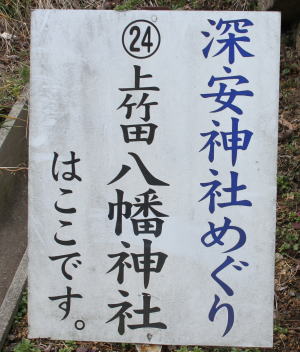 深安神社めぐり
㉔上竹田八幡神社
はここです。